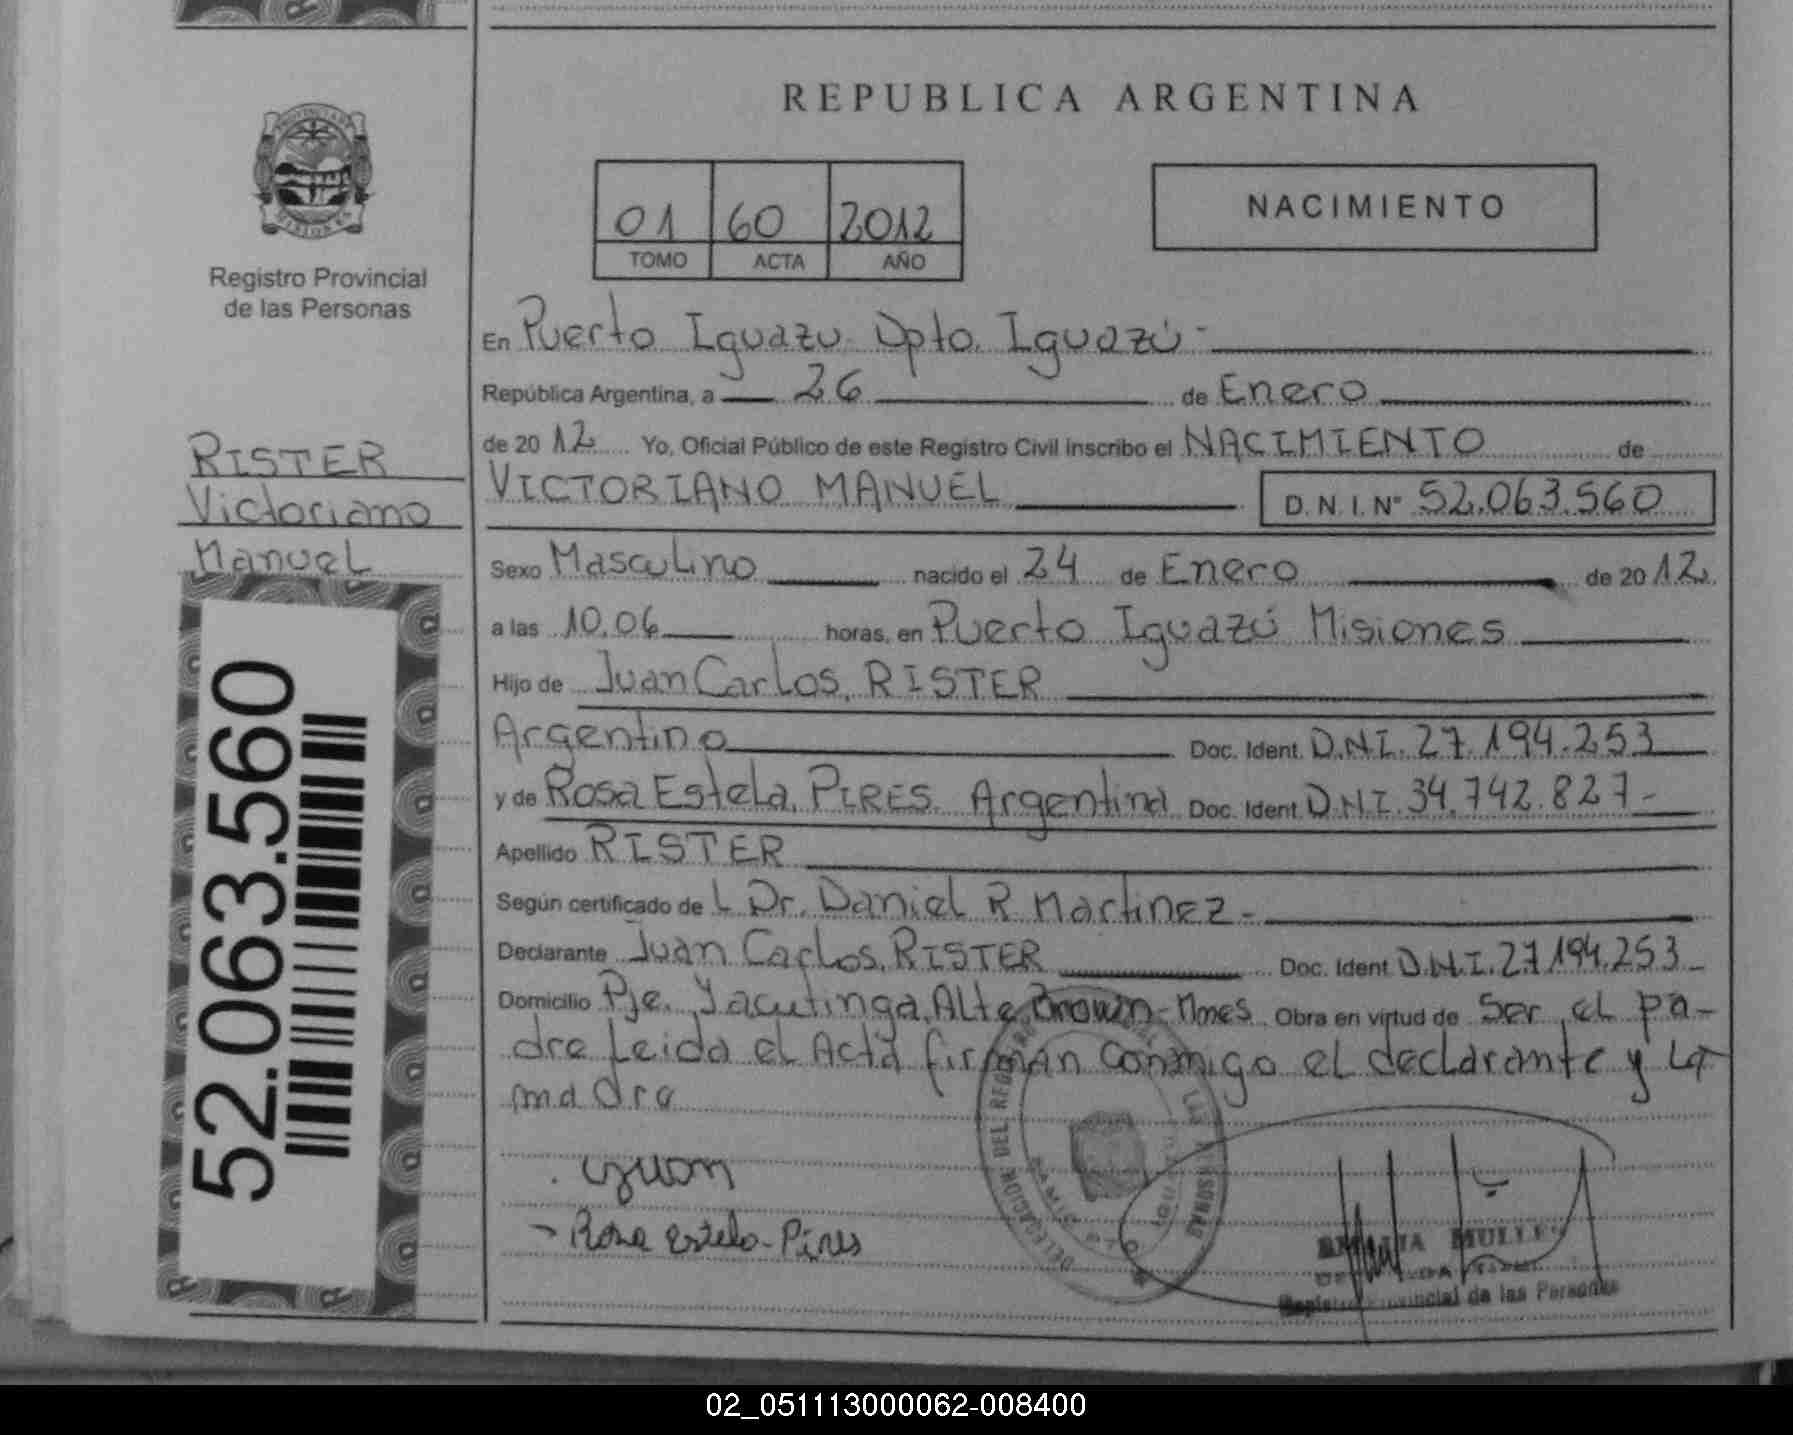 REPUBLICA ARGENTINA
01 60 2012
TOMO ACTA AÑO
NACIMIENTO
Registro Provincial
de las Personas
RISTER
Victoriano
Manuel
52.063.560
En Puerto Iguazu Dpto. Iguazú -
República Argentina, a 26 de Enero
de 2012 Yo, Oficial Público de este Registro Civil inscribo el NACIMIENTO de
VICTORIANO MANUEL D.N.I.Nº 52.063.560
Sexo Masculino nacido el 24 de Enero de 2012
a las 10,06 horas, en Puerto Iguazú Misiones
Hijo de Juan Carlos, RISTER
Argentino Doc. Ident. D.N.I. 27.194.253
y de Rosa Estela, PIRES. Argentina Doc. Ident. D.N.I. 34.742.827-
Apellido RISTER
Según certificado de L Dr. Daniel R Martinez-
Declarante Juan Carlos, RISTER Doc. Ident. D.N.I. 27.194.253
Domicilio Pje. Yacutinga, Alte Brown-Mnes Obra en virtud de Ser el pa-
dre Leida el Acta firman conmigo el declarante y La
madre
Rosa Estela Pires
DELEGACION DEL REGISTRO LAS PERSONAS
MULLER
Registro Provincial de las Personas
02_051113000062-008400